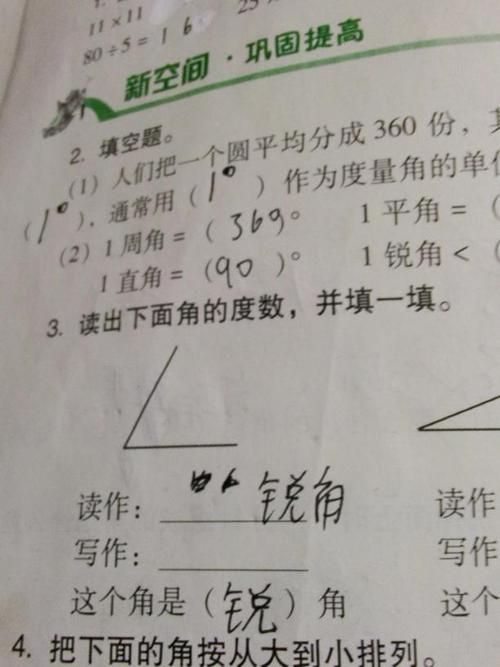 11×11
80÷5=16
新空间·巩固提高
2. 填空题。
(1) 人们把一个圆平均分成 360 份，
(1°)，通常用 (1°) 作为度量角的单
(2) 1 周角 = (369° 1 平角 = (
1 直角 = (90)° 1 锐角 < (
3. 读出下面角的度数，并填一填。
读作： 锐角 读作
写作： 写作
这个角是 (锐) 角 这个
4. 把下面的角按从大到小排列。